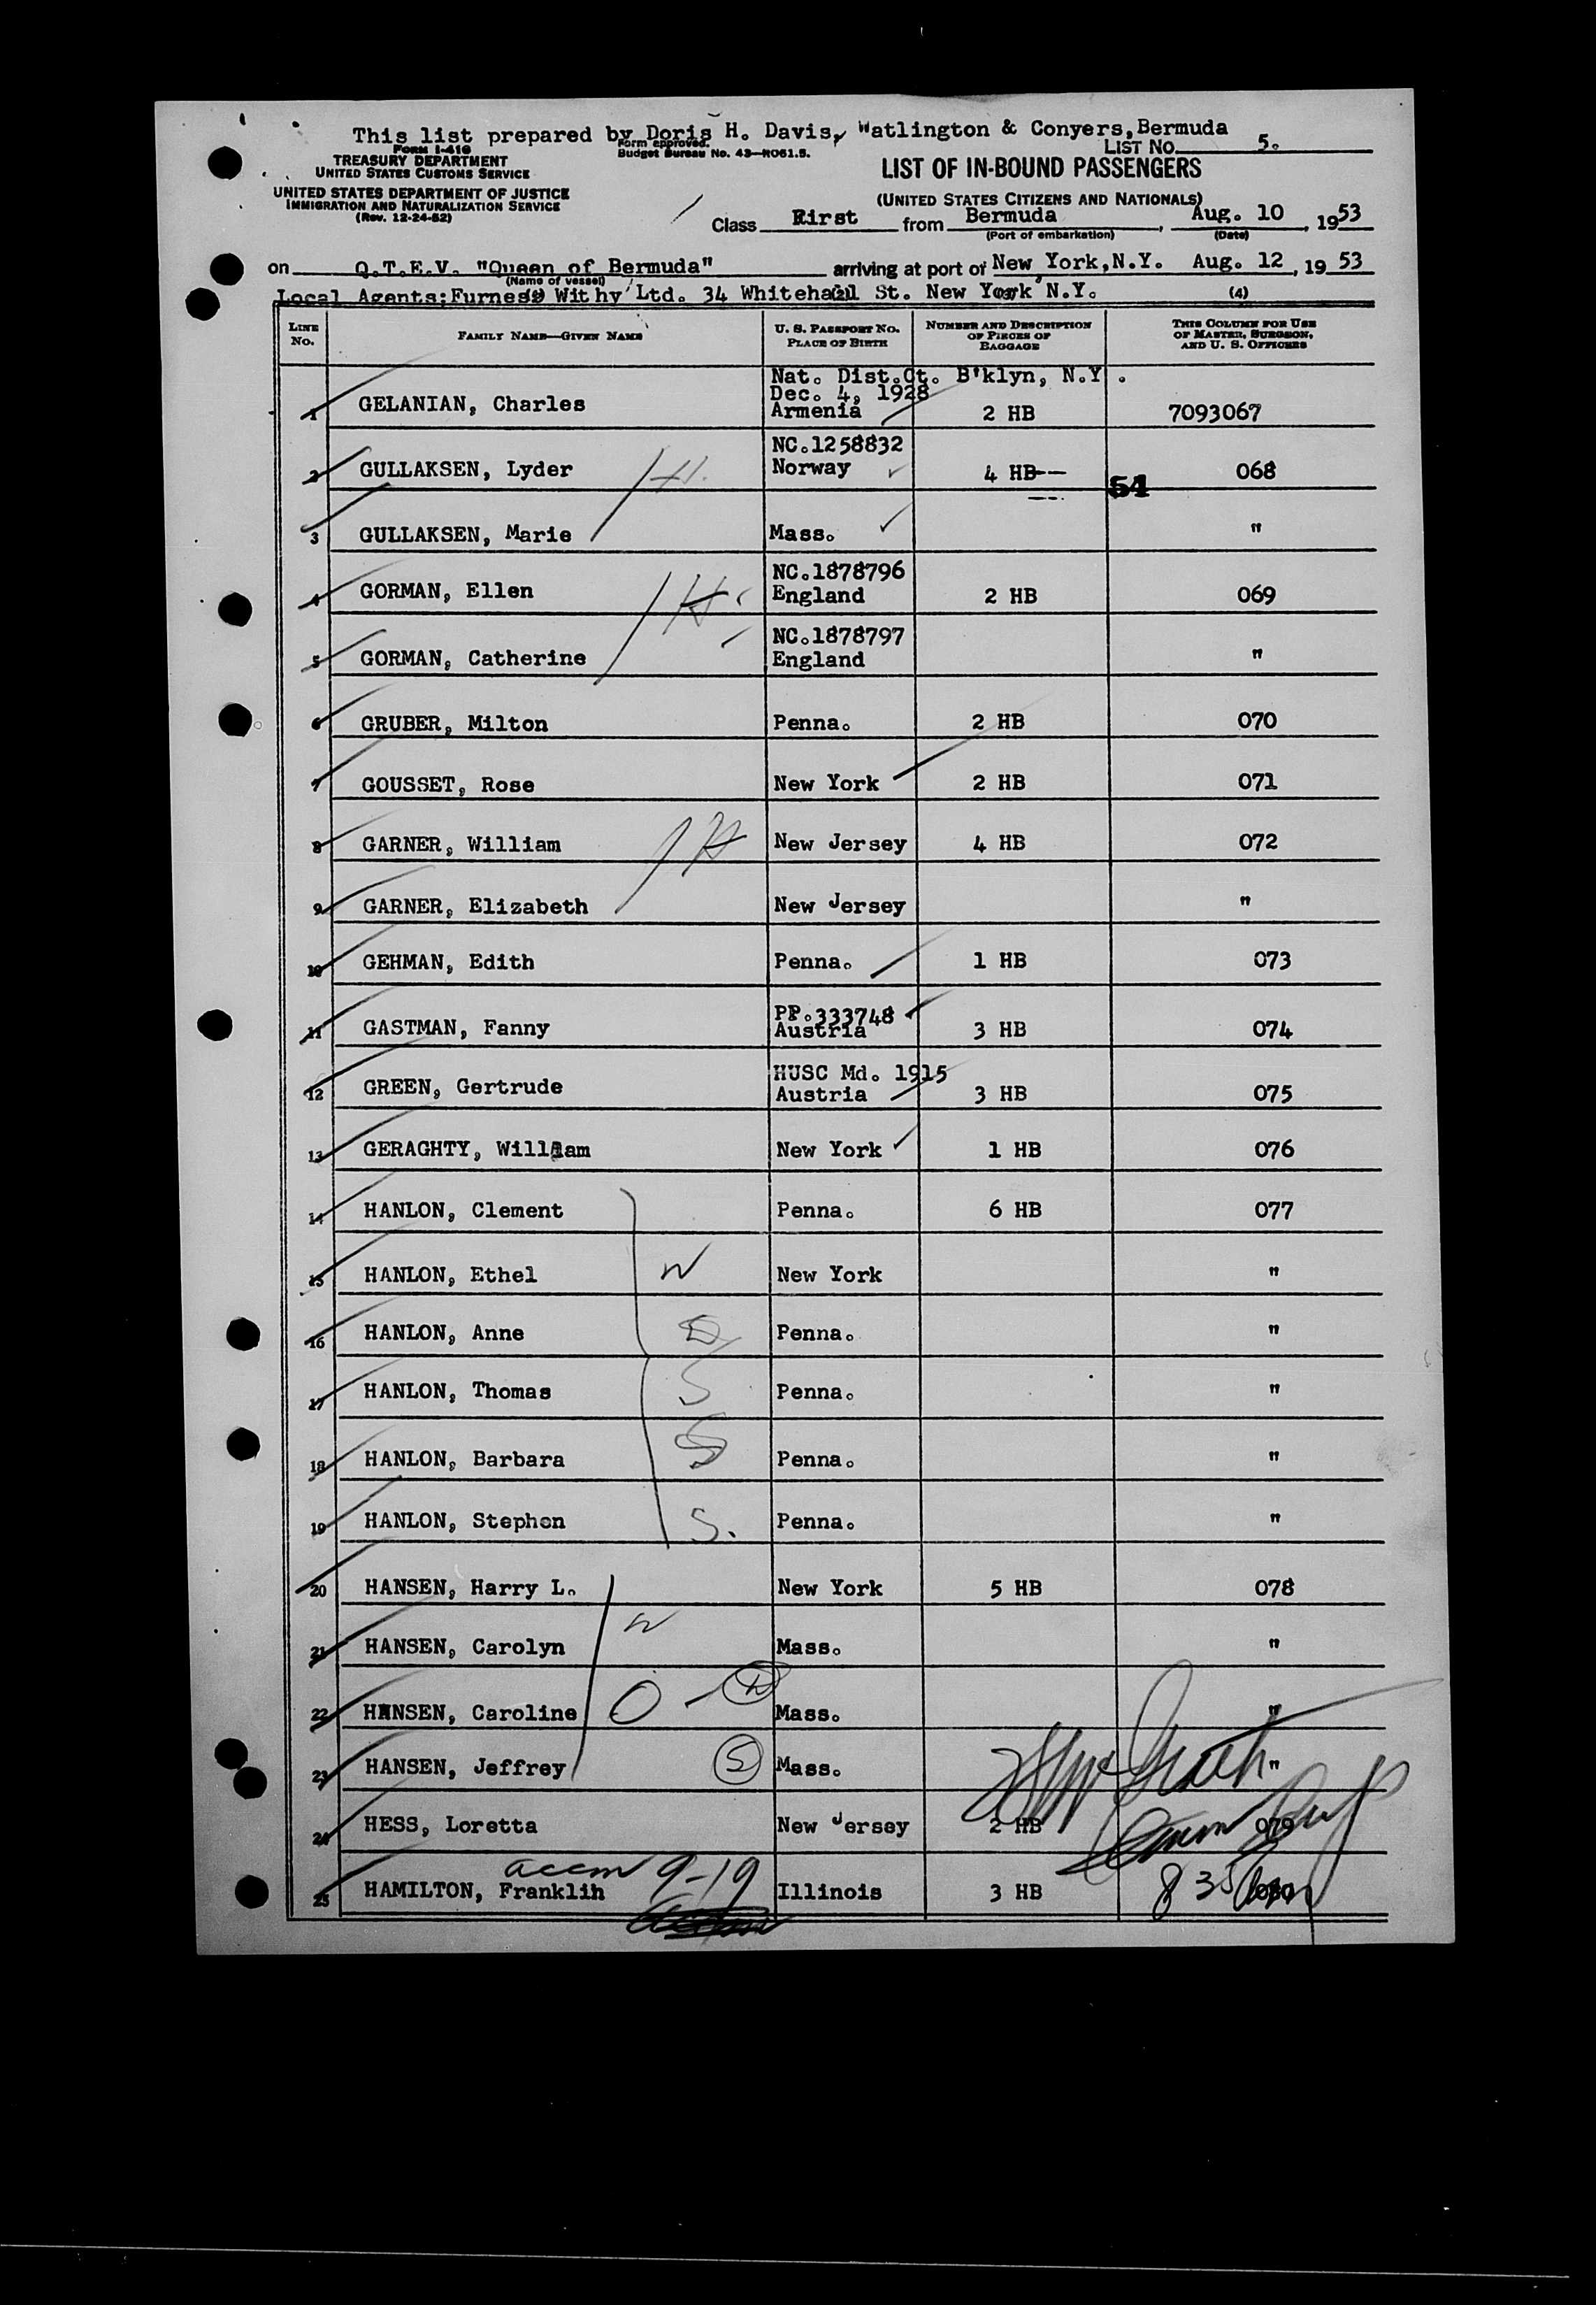 This list prepared by Doris H. Davis, Watlington & Conyers, Bermuda
FORM I-418
TREASURY DEPARTMENT
UNITED STATES CUSTOMS SERVICE
UNITED STATES DEPARTMENT OF JUSTICE
IMMIGRATION AND NATURALIZATION SERVICE
(Rev. 12-24-52)
Form approved.
Budget Bureau No. 43-R061.5.
LIST NO. 5.
LIST OF IN-BOUND PASSENGERS
(UNITED STATES CITIZENS AND NATIONALS)
Class First from Bermuda, Aug. 10, 1953
(Port of embarkation) (Date)
on Q.T.E.V. "Queen of Bermuda" arriving at port of New York, N.Y. Aug. 12, 1953
(Name of vessel)
Local Agents: Furness Withy Ltd. 34 Whitehall St. New York N.Y.
(4)
LINE No. FAMILY NAME—GIVEN NAME U. S. PASSPORT NO. PLACE OF BIRTH NUMBER AND DESCRIPTION OF PIECES OF BAGGAGE THIS COLUMN FOR USE OF MASTER, SURGEON, AND U. S. OFFICERS
Nat. Dist.Ct. B'klyn, N.Y.
Dec. 4, 1928
1 GELANIAN, Charles Armenia 2 HB 7093067
NC.1258832
2 GULLAKSEN, Lyder Norway 4 HB-- 54 068
3 GULLAKSEN, Marie Mass. "
NC.1878796
4 GORMAN, Ellen England 2 HB 069
NC.1878797
5 GORMAN, Catherine England "
6 GRUBER, Milton Penna. 2 HB 070
7 GOUSSET, Rose New York 2 HB 071
8 GARNER, William New Jersey 4 HB 072
9 GARNER, Elizabeth New Jersey "
10 GEHMAN, Edith Penna. 1 HB 073
PP.333748
11 GASTMAN, Fanny Austria 3 HB 074
HUSC Md. 1915
12 GREEN, Gertrude Austria 3 HB 075
13 GERAGHTY, William New York 1 HB 076
14 HANLON, Clement Penna. 6 HB 077
15 HANLON, Ethel W New York "
16 HANLON, Anne Penna. "
17 HANLON, Thomas S Penna. "
18 HANLON, Barbara Penna. "
19 HANLON, Stephen S. Penna. "
20 HANSEN, Harry L. New York 5 HB 078
21 HANSEN, Carolyn W Mass. "
22 HANSEN, Caroline Mass. "
23 HANSEN, Jeffrey S Mass. "
24 HESS, Loretta New Jersey 2 HB 079
9-19
25 HAMILTON, Franklin Illinois 3 HB 080